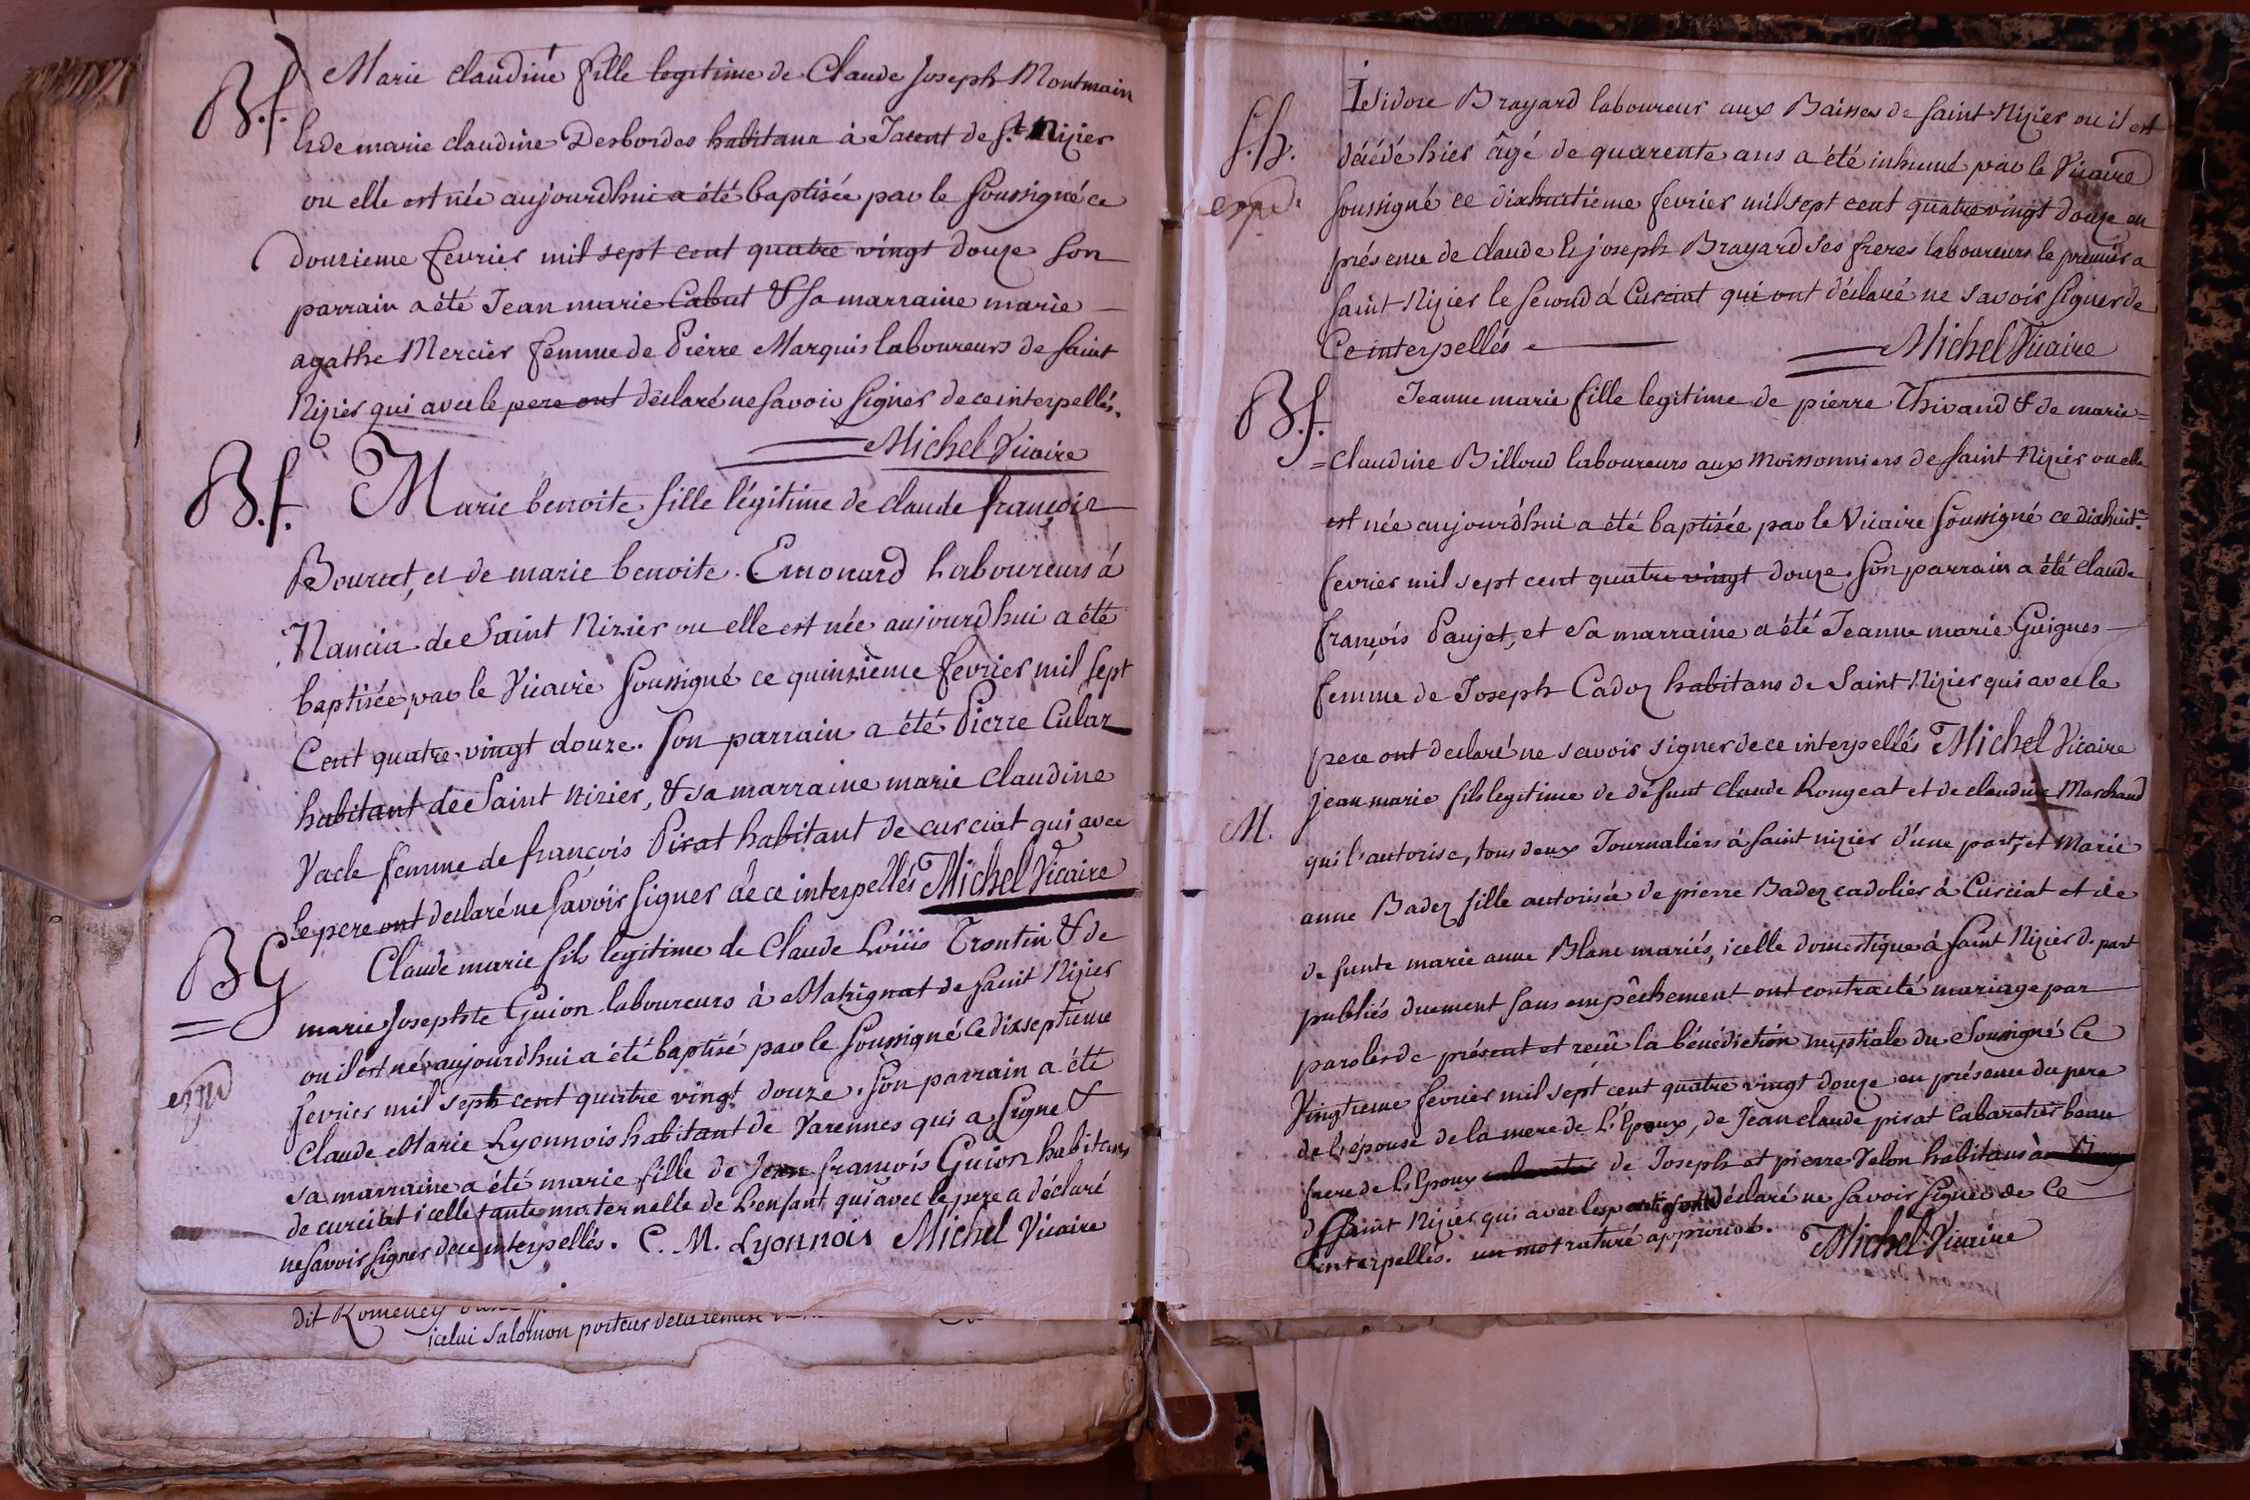 B.f. Marie claudine fille legitime de Claude Joseph Montmain
& de marie claudine Desbordes habitans à Tarent de St. Nizier
ou elle est née aujourdhui a été baptisée par le soussigné ce
douzieme fevrier mil sept cent quatre vingt douze son
parrain a été Jean marie Cabut & sa marraine marie
agathe Mercier femme de Pierre Marquis laboureurs de saint
Nizier qui avec le pere ont déclaré ne savoir signer de ce interpellés.
Michel Vicaire
B.f. Marie benoite fille légitime de claude françois
Bourcet, et de marie benoite Emonard laboureurs à
Nancia de Saint Nizier ou elle est née aujourdhui a été
baptisée par le Vicaire soussigné ce quinzième fevrier mil sept
Cent quatre vingt douze. son parrain a été Pierre Cular
habitant de Saint Nizier, & sa marraine marie claudine
Vacle femme de françois Pirat habitant de curciat qui avec
le pere ont declaré ne savoir signer de ce interpellés Michel Vicaire
BG Claude marie fils legitime de Claude Loüis Trontin & de
marie Josephte Guion laboureurs à Matrignat de saint Nizier
ou il est né aujourdhui a été baptisé par le soussigné ce dixseptieme
fevrier mil sept cent quatre vingt douze. son parrain a été
Claude Marie Lyonnois habitant de Varennes qui a signé &
sa marraine a été marie fille de Jean françois Guion habitans
de curciat icelle tante maternelle de l'enfant qui avec le pere a déclaré
ne savoir signer de ce interpellés. C. M. Lyonnois Michel Vicaire
dit Romeney
icelui Salomon porteur de la remise
S.h. Isidore Brayard laboureur aux Baisses de saint Nizier ou il est
décédé hier âgé de quarente ans a été inhumé par le Vicaire
exp.d. soussigné ce dixhuitième fevrier mil sept cent quatre vingt douze en
présence de claude & joseph Brayard ses freres laboureurs le premier a
saint Nizier le second à Curciat qui ont déclaré ne savoir signer de
Ce interpellés Michel Vicaire
B.f. Jeanne marie fille legitime de pierre Thivand & de marie=
=claudine Billoud laboureurs aux moissonniers de saint Nizier ou elle
est née aujourd'hui a été baptisée par le Vicaire soussigné ce dixhuit.e
fevrier mil sept cent quatre vingt douze. son parrain a été claude
françois Paujet, et sa marraine a été Jeanne marie Guigues
femme de Joseph Cadoz habitans de Saint Nizier qui avec le
pere ont declaré ne savoir signer de ce interpellés Michel Vicaire
Jean marie fils legitime de defunt claude Rongeat et de claudine Marchand
M. qui l'autorise, tous deux Journaliers à saint nizier d'une part, et Marie
anne Badez fille autorisée de pierre Badez cadolier à Curciat et de
defunte marie anne Blanc mariés, icelle domestique à saint Nizier d. part
publiés duement sans empêchement ont contracté mariage par
paroles de présent et recû la bénédiction nuptiale du Soussigné Ce
Vingtieme fevrier mil sept cent quatre vingt douze en présence du pere
de l'épouse de la mere de L'Epoux, de Jean claude pirat Cabaretier beau
frere de L'Epoux de Joseph et pierre Velon habitans à
de saint Nizier qui avec les parties ont déclaré ne savoir signer de Ce
interpellés. un mot raturé approuvé. Michel Vicaire